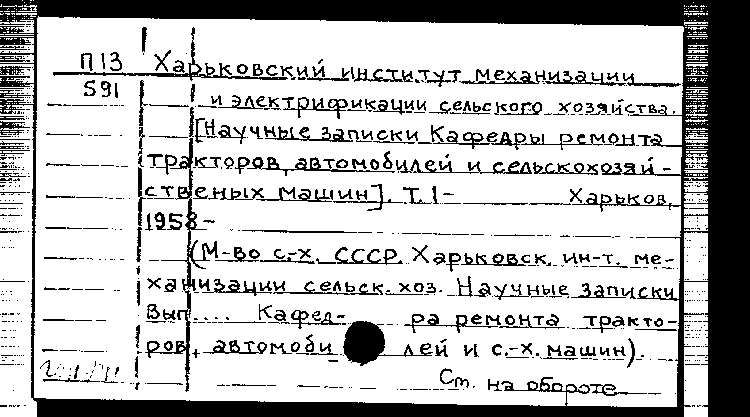 П13 Харьковский институт механизации
591 и электрификации сельского хозяйства.
[Научные записки Кафедры ремонта
тракторов, автомобилей и сельскохозяй-
ственых машин]. Т. 1- Харьков,
1958-
(М-во с.-х. СССР. Харьковск. ин-т. ме-
ханизации сельск. хоз. Научные записки
Вып.... Кафед- ра ремонта тракто-
ров, автомоби лей и с.-х. машин).
См. на обороте